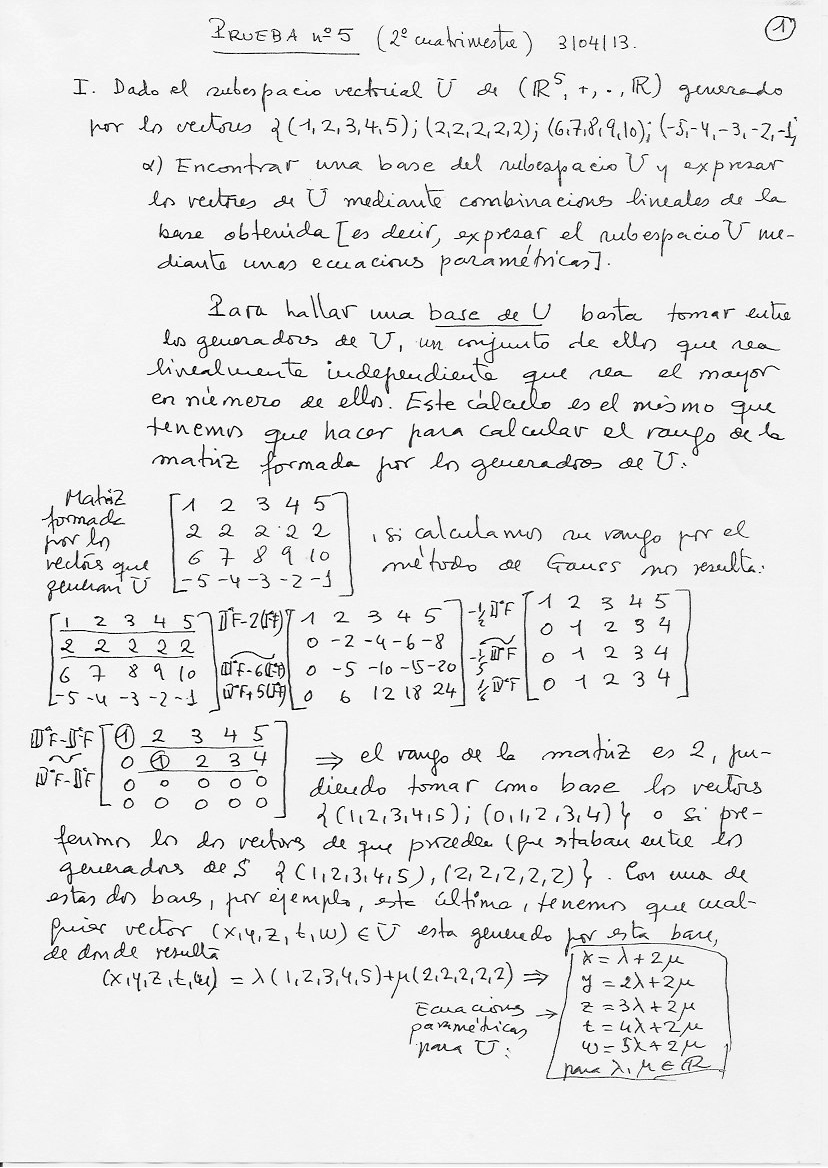 1
PRUEBA nº 5 (2º cuatrimestre) 3/04/13.
I. Dado el subespacio vectorial U de (ℝ⁵, +, ·, ℝ) generado
por los vectores {(1,2,3,4,5); (2,2,2,2,2); (6,7,8,9,10); (-5,-4,-3,-2,-1)
α) Encontrar una base del subespacio U y expresar
los vectores de U mediante combinaciones lineales de la
base obtenida [es decir, expresar el subespacio U me-
diante unas ecuacions paramétricas].
Para hallar una base de U basta tomar entre
los generadores de U, un conjunto de ellos que sea
linealmente independiente que sea el mayor
en número de ellos. Este cálculo es el mismo que
tenemos que hacer para calcular el rango de la
matriz formada por los generadores de U:
Matriz
formada
por los
vectores que
generan U
1 2 3 4 5
2 2 2 2 2
6 7 8 9 10
-5 -4 -3 -2 -1
, si calculamos su rango por el
método de Gauss nos resulta:
1 2 3 4 5
2 2 2 2 2
6 7 8 9 10
-5 -4 -3 -2 -1
IIªF-2(IªF)
IIIªF-6(IªF)
IVªF+5(IªF)
1 2 3 4 5
0 -2 -4 -6 -8
0 -5 -10 -15 -20
0 6 12 18 24
-1/2 IIªF
-1/5 IIIªF
1/6 IVªF
1 2 3 4 5
0 1 2 3 4
0 1 2 3 4
0 1 2 3 4
IIIªF-IIªF
~
IVªF-IIªF
1 2 3 4 5
0 1 2 3 4
0 0 0 0 0
0 0 0 0 0
⇒ el rango de la matriz es 2, pu-
diendo tomar como base los vectores
{(1,2,3,4,5); (0,1,2,3,4)} o si pre-
ferimos los dos vectores de que proceden (que estaban entre los
generadores de S {(1,2,3,4,5), (2,2,2,2,2)}. Con una de
estas dos bases, por ejemplo, esta última, tenemos que cual-
quier vector (x,y,z,t,w) ∈ U esta generado por esta base,
de donde resulta
(x,y,z,t,w) = λ(1,2,3,4,5)+μ(2,2,2,2,2) ⇒
Ecuacions
paramétricas
para U:
→
x = λ+2μ
y = 2λ+2μ
z = 3λ+2μ
t = 4λ+2μ
w = 5λ+2μ
para λ, μ ∈ ℝ